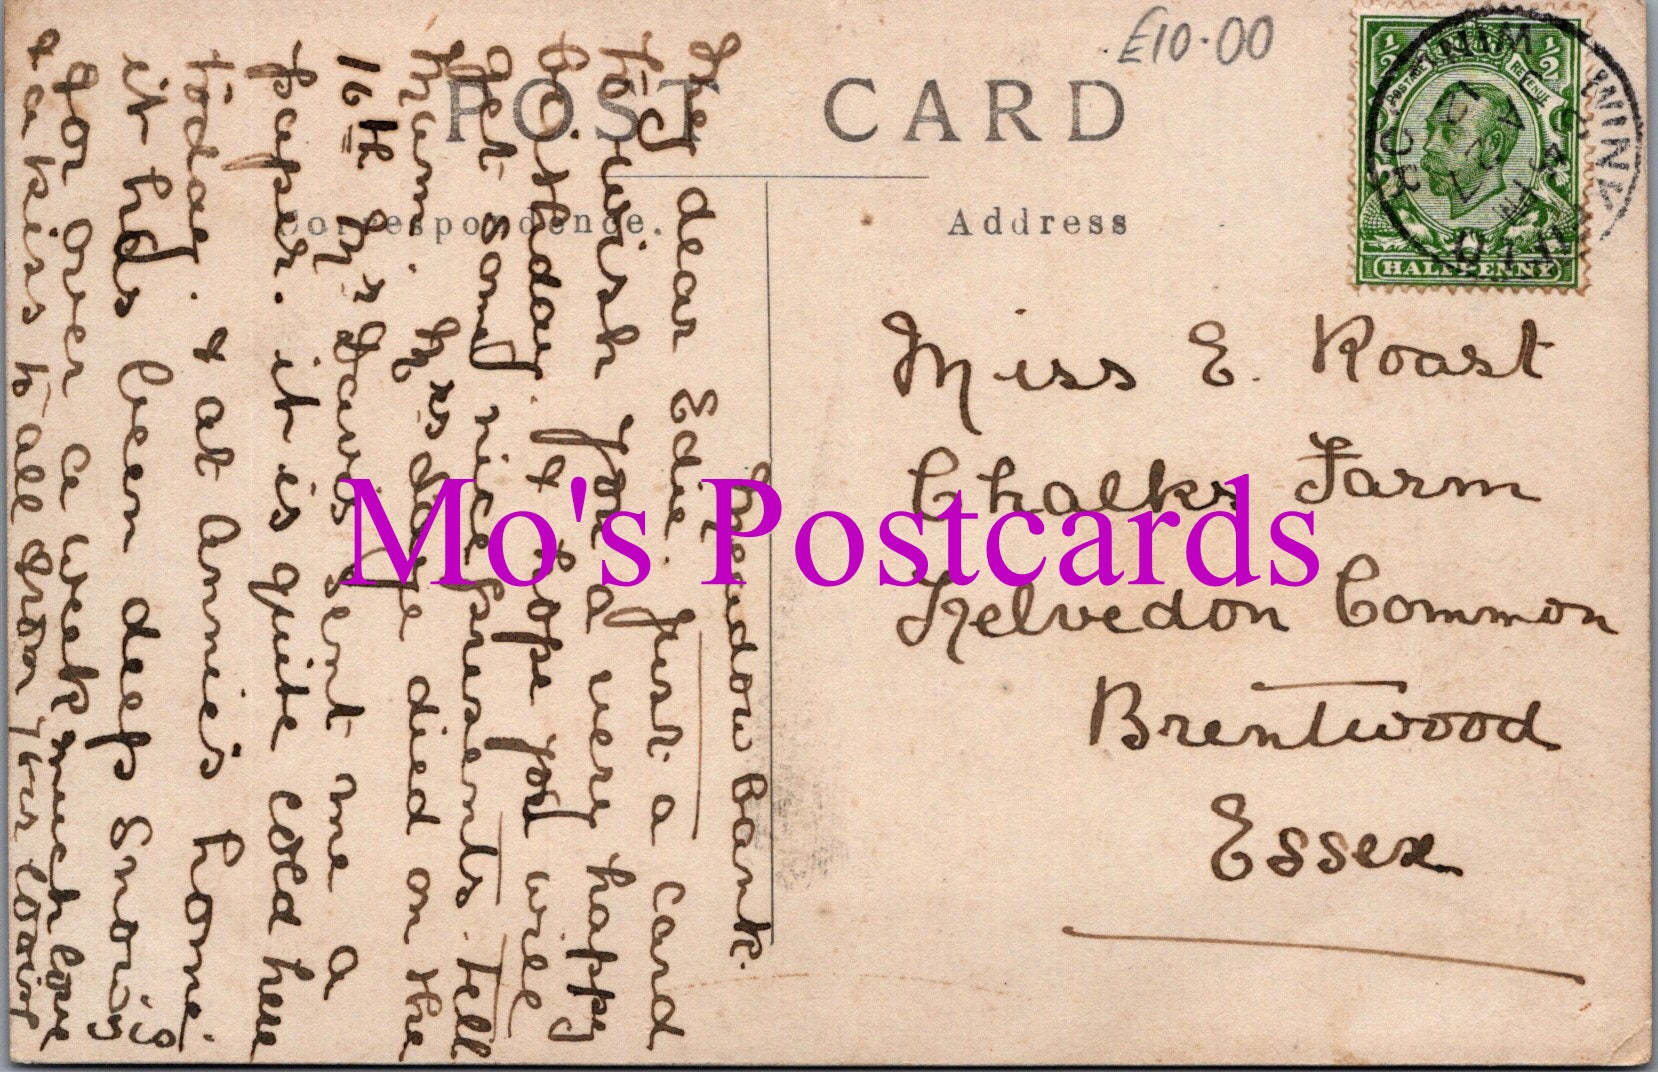 £10.00
POST CARD
Correspondence.
Address
½ ½
POSTAGE REVENUE
HALFPENNY
WINDSOR
Miss E. Roast
Chalks Farm
Kelvedon Common
Brentwood
Essex
Bank.
My dear Edie. Just a card
to wish you a very happy
Birthday. & hope you will
get some nice presents. tell
mum. Mrs died on the
16th Mrs Davis sent me a
paper. it is quite cold here
today. & at Annie's home.
it has been deep snow
for over a week much love
& a kiss to all from yrs
Mo's Postcards